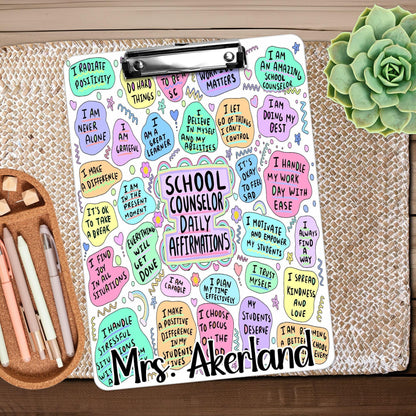 I RADIATE
POSITIVITY
DO HARD
THINGS
TO BE MY
SC
MATTERS
I AM
AN AMAZING
SCHOOL
COUNSELOR
I AM
NEVER
ALONE
I AM
GRATEFUL
I AM
A GREAT
LEARNER
I
BELIEVE
IN MYSELF
AND MY
ABILITIES
I LET
GO OF THINGS
I CAN'T
CONTROL
I AM
DOING MY
BEST
I MAKE
A DIFFERENCE
I AM
IN THE
PRESENT
MOMENT
SCHOOL
COUNSELOR
DAILY
AFFIRMATIONS
IT'S
OKAY TO
FEEL
SAD
I HANDLE
MY WORK
DAY WITH
EASE
IT'S OK TO
TAKE A
BREAK
EVERYTHING
WILL
GET
DONE
I MOTIVATE
AND EMPOWER
MY STUDENTS
I
ALWAYS
FIND
A
WAY
I FIND
JOY
IN ALL
SITUATIONS
I AM
CAPABLE
I PLAN
MY TIME
EFFECTIVELY
I TRUST
MYSELF
I SPREAD
KINDNESS
AND
LOVE
I HANDLE
STRESSFUL
SITUATIONS
I MAKE
A POSITIVE
DIFFERENCE
IN MY
STUDENTS
I CHOOSE
TO FOCUS
ON THE
MY
STUDENTS
DESERVE
I AM
A BETTER
SCHOOL
EVERY
Mrs. Akerland